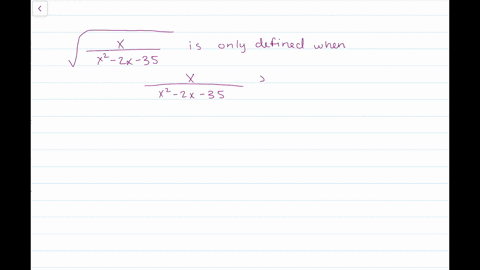 √(x/(x²-2x-35)) is only defined when
x/(x²-2x-35) >